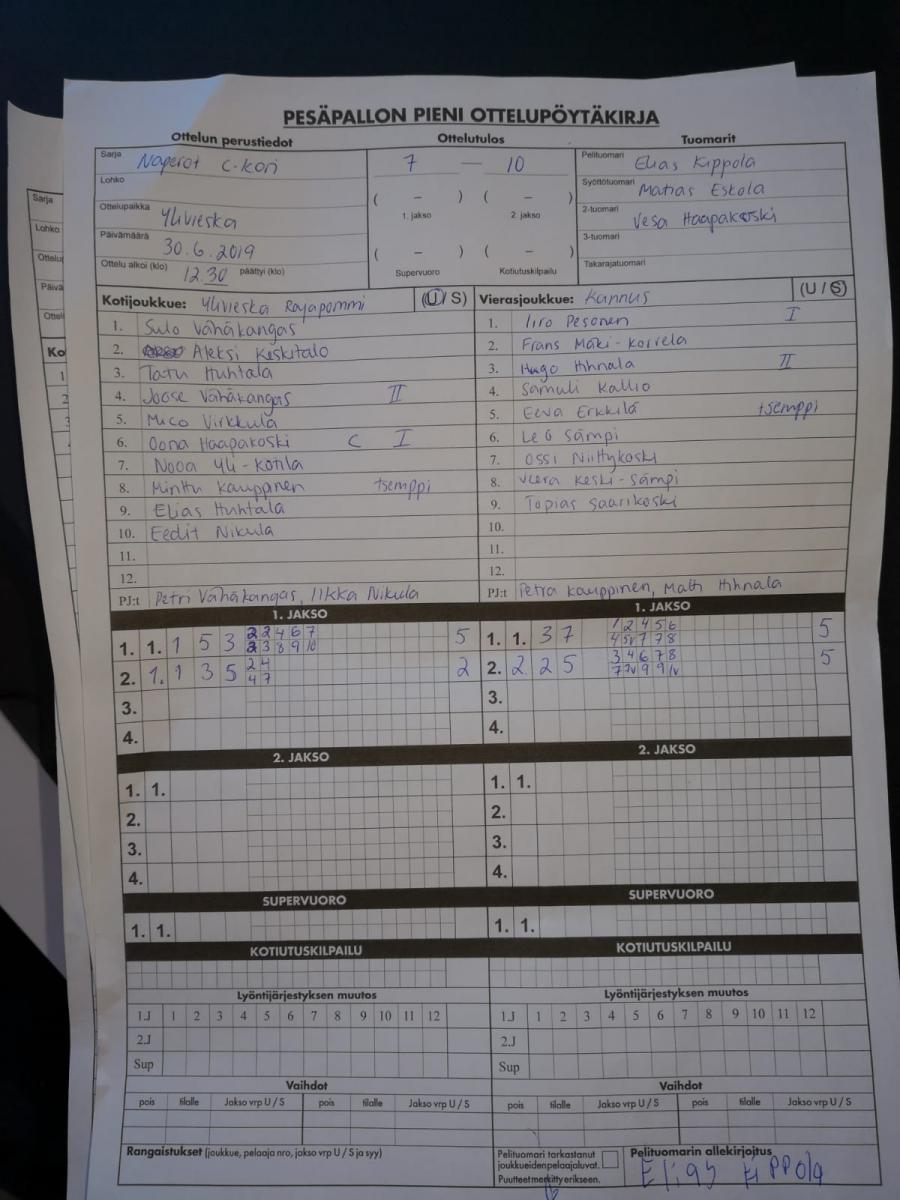 PESÄPALLON PIENI OTTELUPÖYTÄKIRJA
Ottelun perustiedot Ottelutulos Tuomarit
Sarja Naperot C-kori
7 — 10
Pelituomari Elias Kippola
Lohko
Syöttötuomari Matias Eskola
( – ) ( – )
1. jakso 2. jakso
Ottelupaikka Ylivieska
2-tuomari Vesa Haapakoski
Päivämäärä 30.6.2019
3-tuomari
( – ) ( – )
Ottelu alkoi (klo) 12.30 päättyi (klo)
Supervuoro Kotiutuskilpailu
Takarajatuomari
Kotijoukkue: Ylivieska Rajapommi (U/S) Vierasjoukkue: Kannus (U/S)
1. Sulo Vähäkangas
2. Aleksi Keskitalo
3. Tatu Huhtala
4. Joose Vähäkangas II
5. Mico Virkkula
6. Oona Haapakoski C I
7. Nooa Yli-
8. Minttu Kauppinen tsemppi
9. Elias Huhtala
10. Eedit Nikula
11.
12.
PJ:t Petri Vähäkangas, Ilkka Nikula
1. Iiro Pesonen I
2. Frans Mäki-Korvela
3. Hugo Hihnala II
4. Samuli Kallio
5. Eeva Erkkilä tsemppi
6. Leo Sämpi
7. Ossi Niittykoski
8. Keski-Sämpi
9. Topias Saarikoski
10.
11.
12.
PJ:t Petra Kauppinen, Hihnala
1. JAKSO 1. JAKSO
1. 1. 1 5 3 2 2 4 6 7 5
2 3 8 9 10
2. 1. 1 3 5 2 4 2
4 7
3.
4.
1. 1. 3 7 1 2 4 5 6 5
4 5 7 7 8
2. 2 2 5 3 4 6 7 8 5
3.
4.
2. JAKSO 2. JAKSO
1. 1. 1. 1.
2. 2.
3. 3.
4. 4.
SUPERVUORO SUPERVUORO
1. 1. 1. 1.
KOTIUTUSKILPAILU KOTIUTUSKILPAILU
Lyöntijärjestyksen muutos Lyöntijärjestyksen muutos
1.J 1 2 3 4 5 6 7 8 9 10 11 12 1.J 1 2 3 4 5 6 7 8 9 10 11 12
2.J 2.J
Sup Sup
Vaihdot Vaihdot
pois tilalle Jakso vrp U / S pois tilalle Jakso vrp U / S pois tilalle Jakso vrp U / S pois tilalle Jakso vrp U / S
Rangaistukset (joukkue, pelaaja nro, jakso vrp U / S ja syy)
Pelituomari tarkastanut
joukkueiden pelaajaluvat.
Puutteet merkitty erikseen.
Pelituomarin allekirjoitus
Elias Kippola
Sarja
Lohko